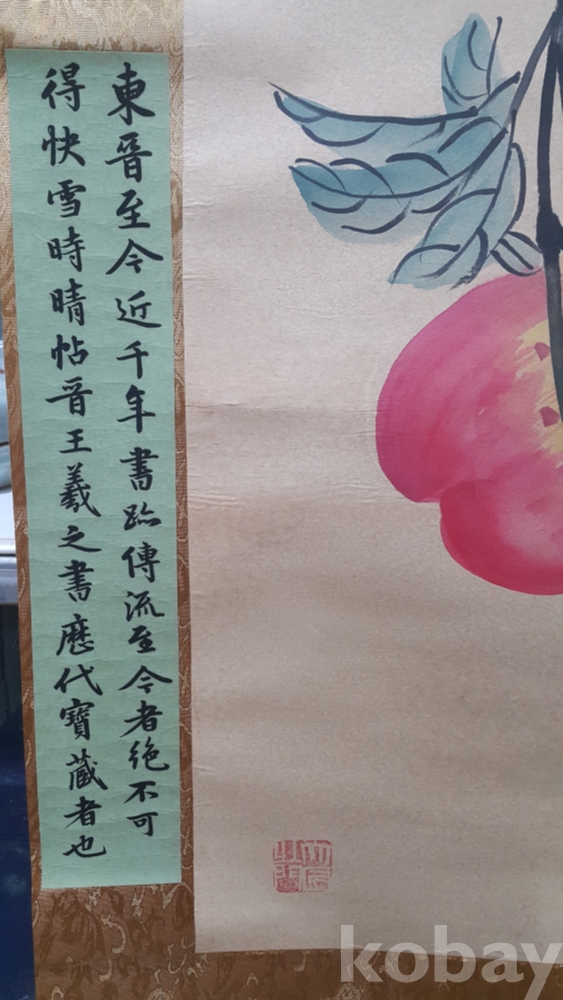 東晉至今近千年書跡傳流至今者絶不可
得快雪時晴帖晉王羲之書歷代寶藏者也
kobay